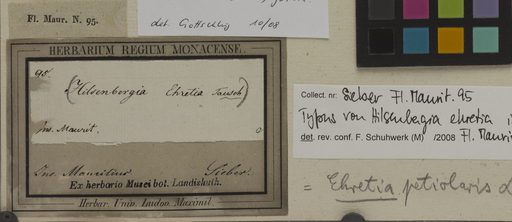 Fl. Maur. N. 95.
det. Gottschling 10/08
HERBARIUM REGIUM MONACENSE.
95.
(Hilsenbergia Ehretia Tausch)
Ins. Maurit.
Ins. Mauritius Sieber.
Ex herbario Musei bot. Landishuth.
Herbar. Univ. Ludov. Maximil.
Collect. nr: Sieber Fl. Maurit. 95
Typus von Hilsenbergia ehretia
det. rev. conf. F. Schuhwerk (M) /2008 Fl. Mauri
= Ehretia petiolaris